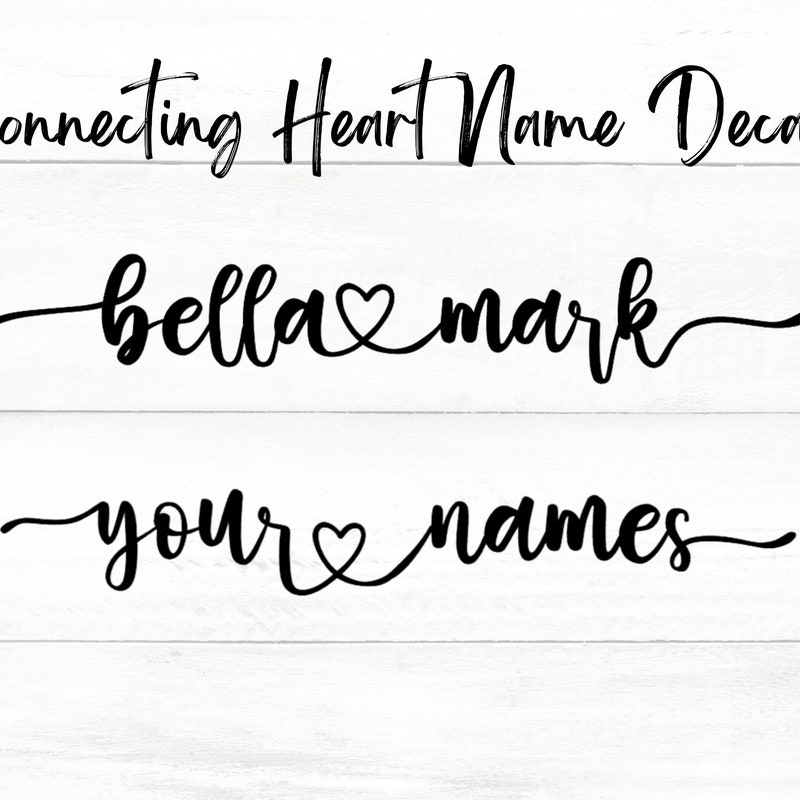 onnecting Heart Name Deca
bella mark
your names